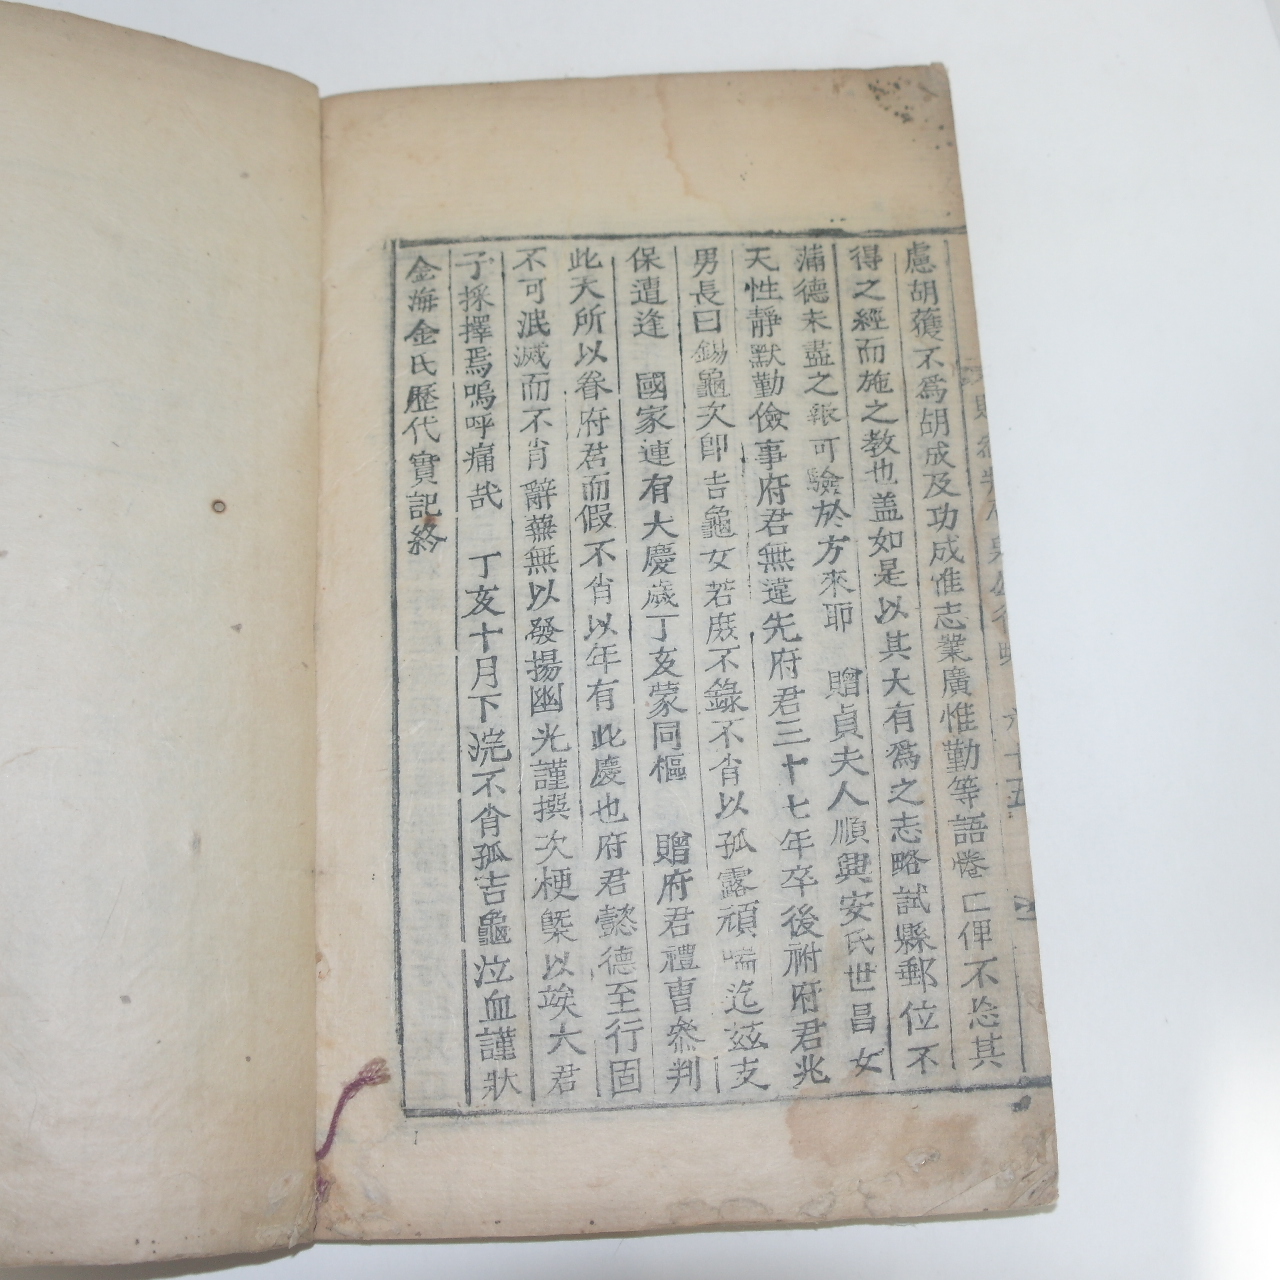 慮胡獲不爲胡成及功成惟志業廣惟勤等語惓二俾不忘其
得之經而施之教也盖如是以其大有爲之志略試縣郵位不
滿德未盡之報可驗於方來耶 贈貞夫人順興安氏世昌女
天性靜默勤儉事府君無違先府君三十七年卒後祔府君兆
男長曰錫龜次卽吉龜女若庶不錄不肖以孤露頑喘迄玆支
保遭逢 國家連有大慶歲丁亥蒙同樞 贈府君禮曹參判
此天所以眷府君而假不肖以年有此慶也府君懿德至行固
不可泯滅而不肖辭蕪無以發揚幽光謹撰次梗槩以竢大君
子採擇焉嗚呼痛哉 丁亥十月下浣不肖孤吉龜泣血謹狀
金海金氏歷代實記終
六十五